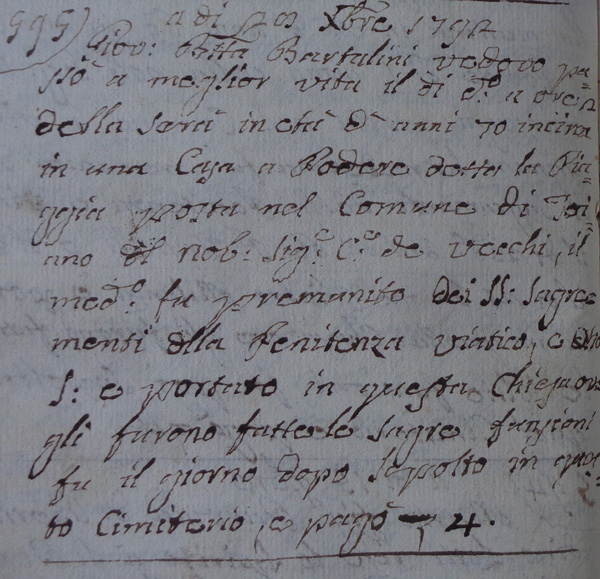 595) a dì 20 Xbre 1792
Giov: Btta Bartalini vedovo pa=
ssò a meglior vita il dì do. a ore 2
della sara in età d'anni 70 incirca
in una Casa a Podere detta la Piag=
ggia posta nel Comune di Toi=
ano del nob: Sigre Ce de Vecchi, il
medo. fu premunito dei SS: Sagra
menti della Penitenza Viatico, e
S: e portato in questa Chiesa ove
gli furono fatte le sagre funzioni
fu il giorno dopo sepolto in ques=
to Cimiterio, e pagò 4.